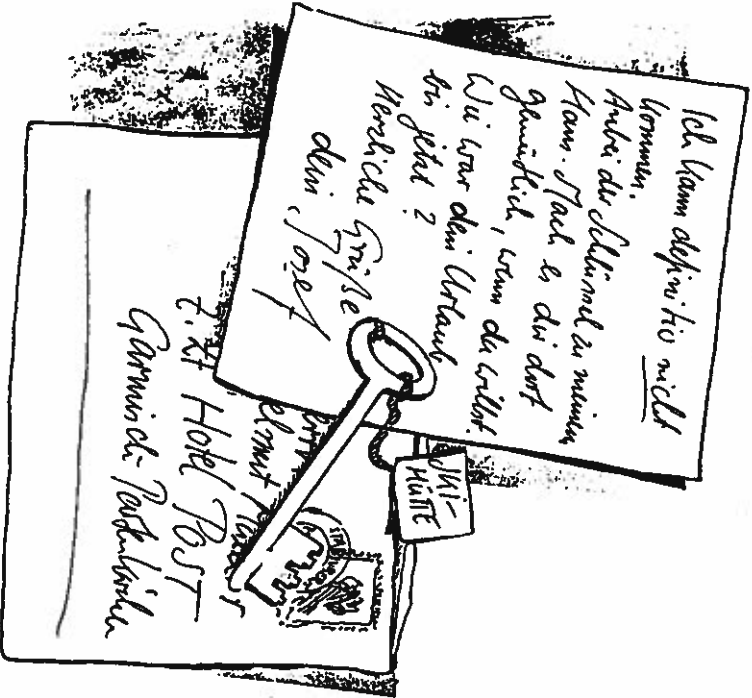 Ich kann definitiv nicht
kommen.
Anbei der Schlüssel zu meinem
Haus. Mach es dir dort
gemütlich, wenn du willst.
Wie war dein Urlaub
bis jetzt?
Herzliche Grüße
dein Josef
SKI-
HÜTTE
z. Zt Hotel Post
Garmisch-Partenkirchen